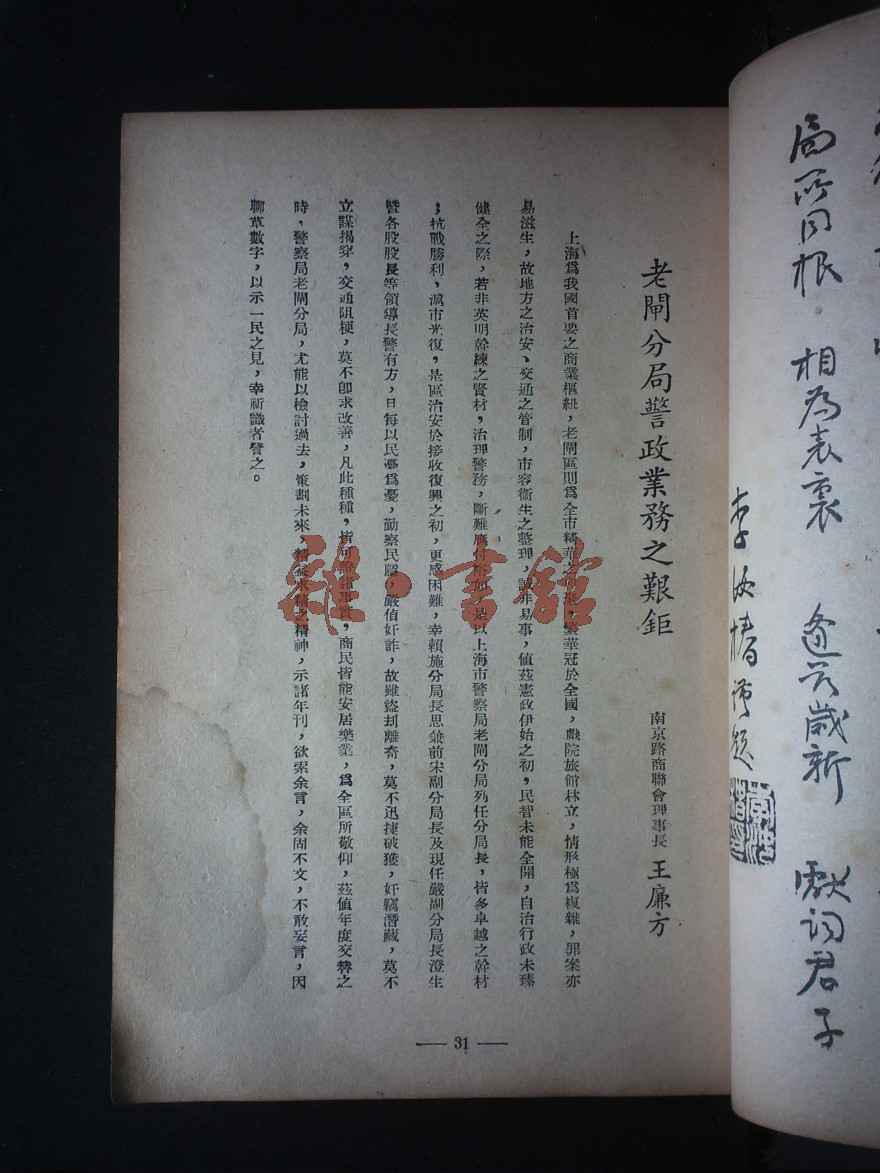 局所同根 相為表裏 逢茲歲新 獻詞君子
李汝椿 題
老閘分局警政業務之艱鉅
南京路商聯會理事長 王廉方
上海爲我國首要之商業樞紐，老閘區則爲全市精華之 繁華冠於全國，戲院旅館林立，情形極爲複雜，罪案亦
易滋生，故地方之治安、交通之管制，市容衞生之整理，誠非易事，値茲憲政伊始之初，民智未能全開，自治行政未臻
健全之際，若非英明幹練之賢材，治理警務，斷難應付裕如，是以上海市警察局老閘分局列任分局長，皆多卓越之幹材
；抗戰勝利，滬市光復，是區治安於接收復興之初，更感困難，幸賴施分局長思兼前宋副分局長及現任嚴副分局長澄生
曁各股股長等領導長警有方，日每以民憂爲憂，勤察民隱，嚴偵奸詐，故雖盜刦離奇，莫不迅捷破獲，奸竊潛藏，莫不
立謀揭穿，交通阻梗，莫不卽求改善，凡此種種，皆可證諸事實，商民皆能安居樂業，爲全區所敬仰，茲値年度交替之
時，警察局老閘分局，尤能以檢討過去，策劃未來，精益求精之精神，示諸年刊，欲索余言，余固不文，不敢妄言，因
聊草數字，以示一民之見，幸祈識者督之。
— 31 —
雜·書館